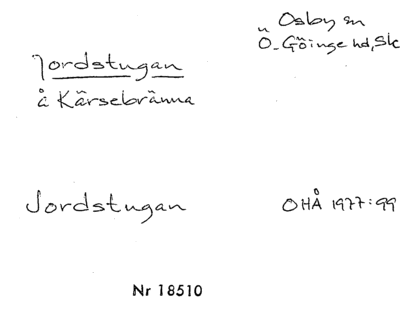 Osby sn
Ö. Göinge hd, Sk
Jordstugan
å Kärsebränna
Jordstugan
OHÅ 1977:99
Nr 18510